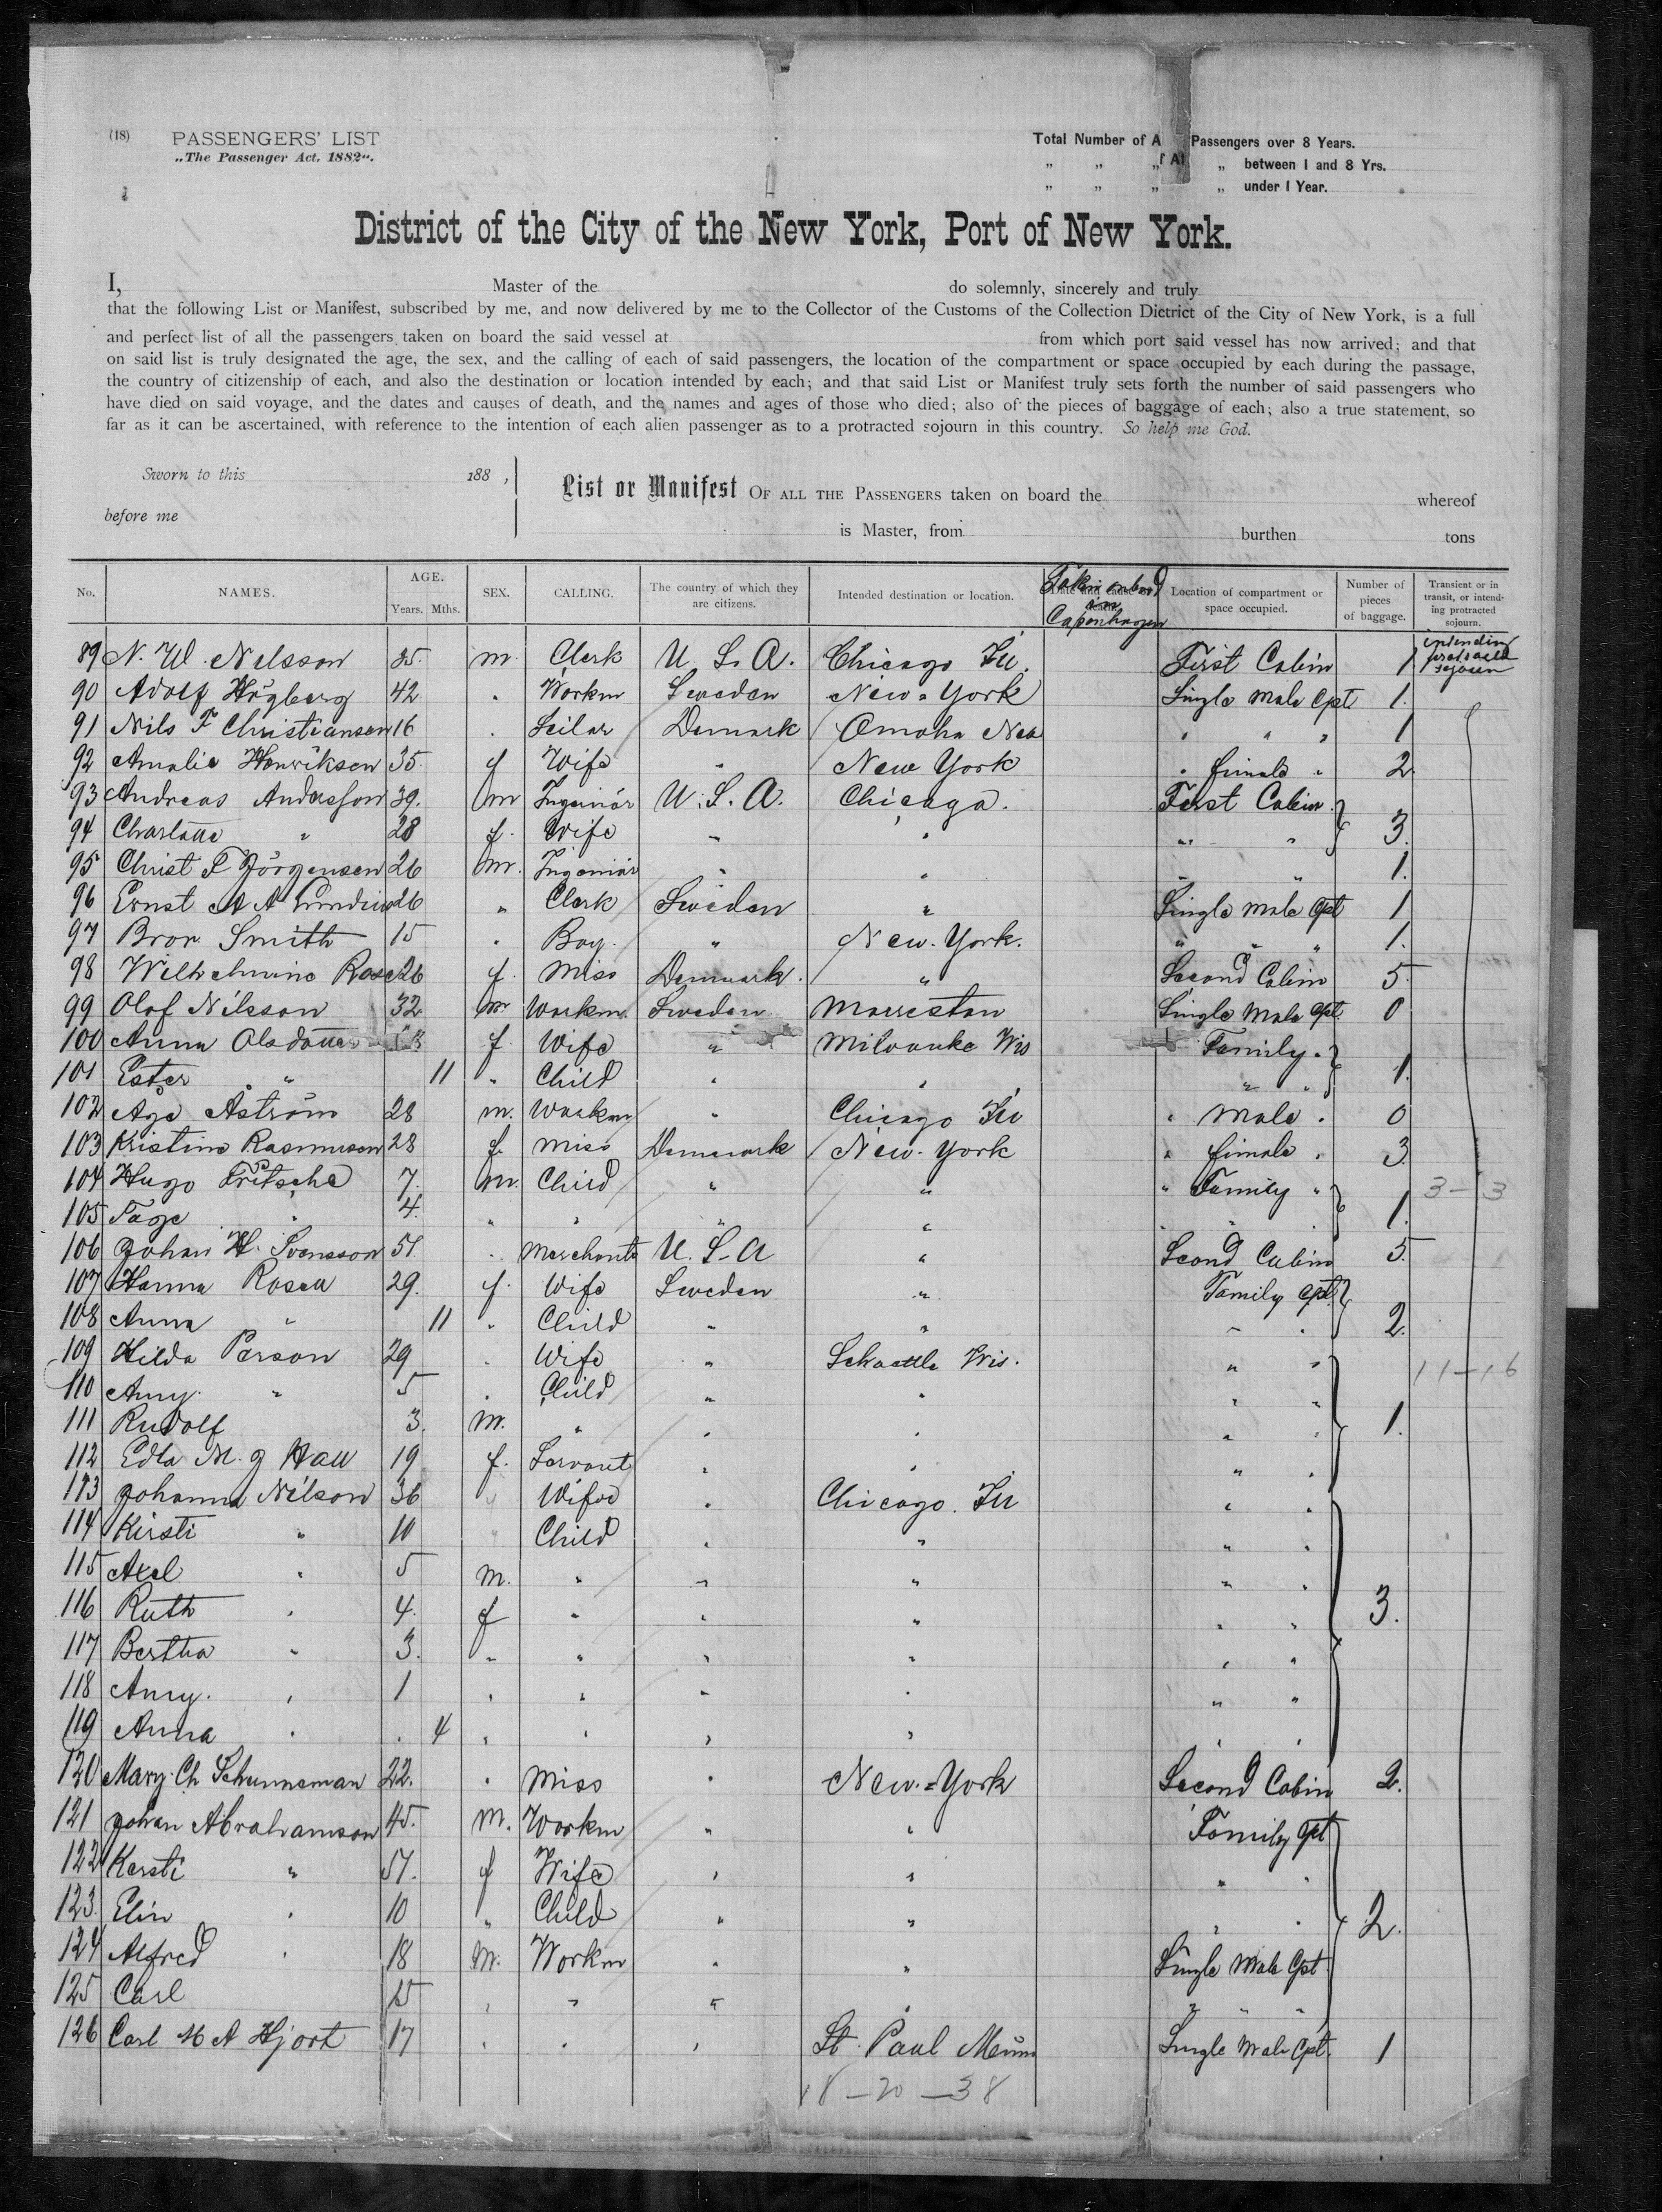 (18) PASSENGERS' LIST
„The Passenger Act, 1882“.
Total Number of A Passengers over 8 Years.
„ „ „ f Al „ between 1 and 8 Yrs.
„ „ „ „ under 1 Year.
District of the City of the New York, Port of New York.
I, Master of the do solemnly, sincerely and truly
that the following List or Manifest, subscribed by me, and now delivered by me to the Collector of the Customs of the Collection Dictrict of the City of New York, is a full
and perfect list of all the passengers taken on board the said vessel at from which port said vessel has now arrived; and that
on said list is truly designated the age, the sex, and the calling of each of said passengers, the location of the compartment or space occupied by each during the passage,
the country of citizenship of each, and also the destination or location intended by each; and that said List or Manifest truly sets forth the number of said passengers who
have died on said voyage, and the dates and causes of death, and the names and ages of those who died; also of the pieces of baggage of each; also a true statement, so
far as it can be ascertained, with reference to the intention of each alien passenger as to a protracted sojourn in this country. So help me God.
Sworn to this 188 ,
before me
List or Manifest OF ALL THE PASSENGERS taken on board the whereof
is Master, from burthen tons
No. NAMES. AGE. Years. Mths. SEX. CALLING. The country of which they are citizens. Intended destination or location. Taken onbord in Capenhagen Location of compartment or space occupied. Number of pieces of baggage. Transient or in transit, or intending protracted sojourn.
89 N. W. Nelsson 35. m. Clerk U. S. A. Chicago Ill. First Cabin 1 intending protracted sojourn
90 Adolf Högberg 42 " Workm Sweden New=York Single Male Cpt 1.
91 Nils F Christiansen 16 " Seiler Denmark Omaha Neb " " " 1
92 Amalie Henriksen 35. f Wife " New York " fimale " 2
93 Andreas Andersson 39. m Ingeniör U. S. A. Chicago. First Cabin
94 Charlotte " 28 f. Wife " " " " 3.
95 Christ F Jörgensen 26 m. Ingeniör " " " " 1.
96 Ernst A A Lundin 26 " Clerk Sweden " Single Male Cpt 1
97 Bror Smith 15 " Boy. " New-York. " " " 1.
98 Wilhelmine Rose 26 f. Miss Denmark. " Second Cabin 5.
99 Olof Nilsson 32 m Workm. Sweden Morrestan Single Male Cpt. 0
100 Anna Olsdotter f. Wife " Milvauke Wis Family "
101 Ester " 11 " Child " " " " 1.
102 Åge Aström 28 m. Workm " Chicago Ill " Male " 0
103 Kristine Rasmussen 28 f. Miss Denmark New-York " fimale " 3
104 Hugo Fritsche 7. m. Child " " " Family " 3–3
105 Tage " 4. " " " " " " 1.
106 Johan H. Svensson 51. " Merchants U. S. A " Second Cabin 5.
107 Hanna Rosen 29. f. Wife Sweden " Family Cpt.
108 Anna " 11 " Child " " " " 2.
109 Hilda Person 29 " Wife " Schaettle Wis. " " 11–16
110 Anny. " 5 " Child " " " "
111 Rudolf 3. m. " " " " " 1.
112 Edla M. J Hall 19 f. Servant " " " "
113 Johanna Nilson 36 " Wifve " Chicago. Ill " "
114 Kirsti " 10 " Child " " " "
115 Axel " 5 m. " " " " "
116 Ruth " 4. f " " " " " 3.
117 Bertha " 3. " " " " " "
118 Anny. " 1 " " " " " "
119 Anna " " 4 " " " " " "
120 Mary Ch Schunneman 22. " Miss " New=York Second Cabin 2.
121 Johan Abrahamson 45. m. Workm " " Family Cpt
122 Kersti " 51. f Wife " " " "
123. Elin " 10 " Child " " " " 2.
124 Alfred " 18 m. Workm " " Single Male Cpt.
125 Carl 15 " " " " " " "
126 Carl M A Hjort 17 " " " St. Paul Minn Single Male Cpt. 1
18–20–38